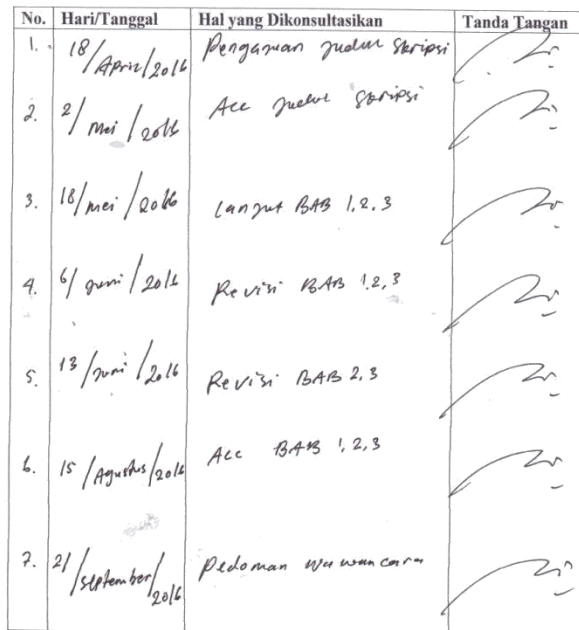 No. Hari/Tanggal Hal yang Dikonsultasikan Tanda Tangan
1. 18/April/2016 Pengajuan judul skripsi
2. 2/Mei/2016 Acc judul skripsi
3. 18/Mei/2016 Lanjut BAB 1,2,3
4. 6/Juni/2016 Revisi BAB 1,2,3
5. 13/Juni/2016 Revisi BAB 2,3
6. 15/Agustus/2016 Acc BAB 1,2,3
7. 21/September/2016 Pedoman wawancara